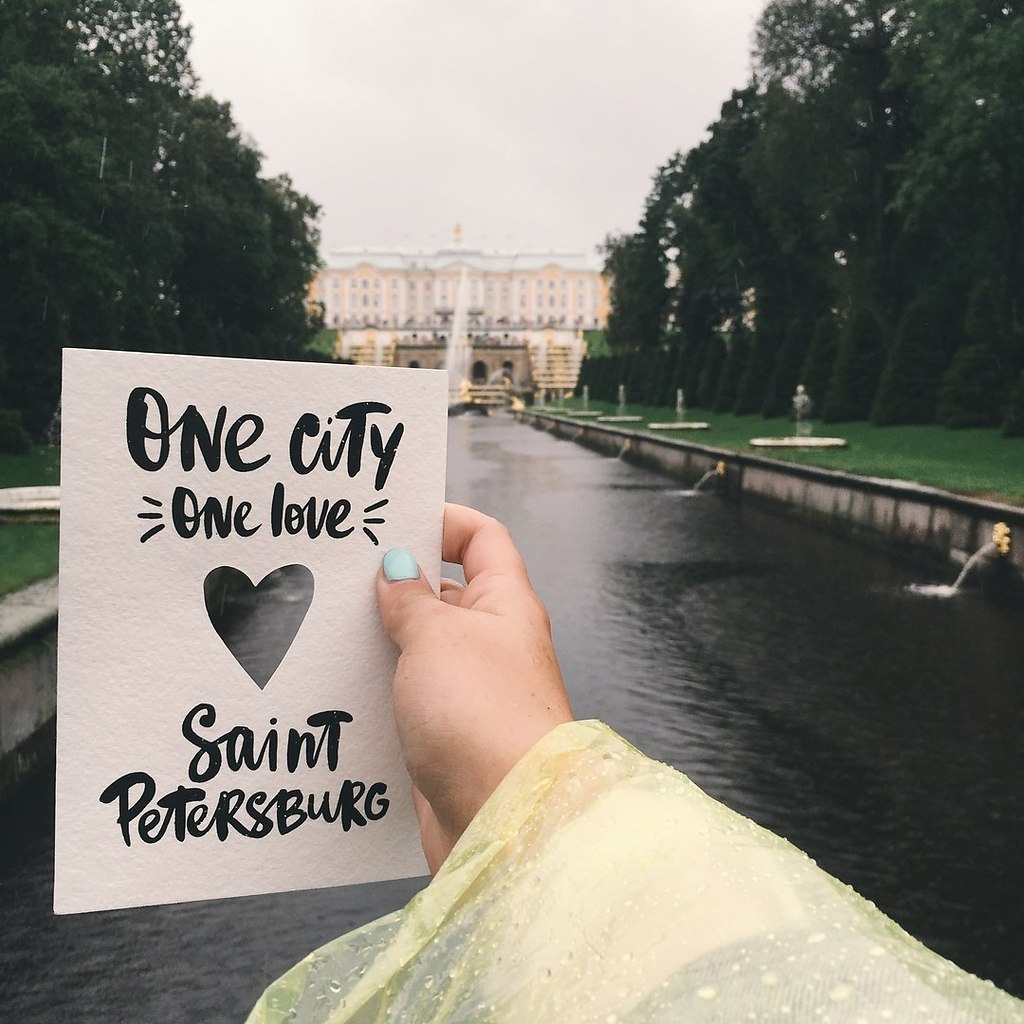 One city
One love
Saint
Petersburg